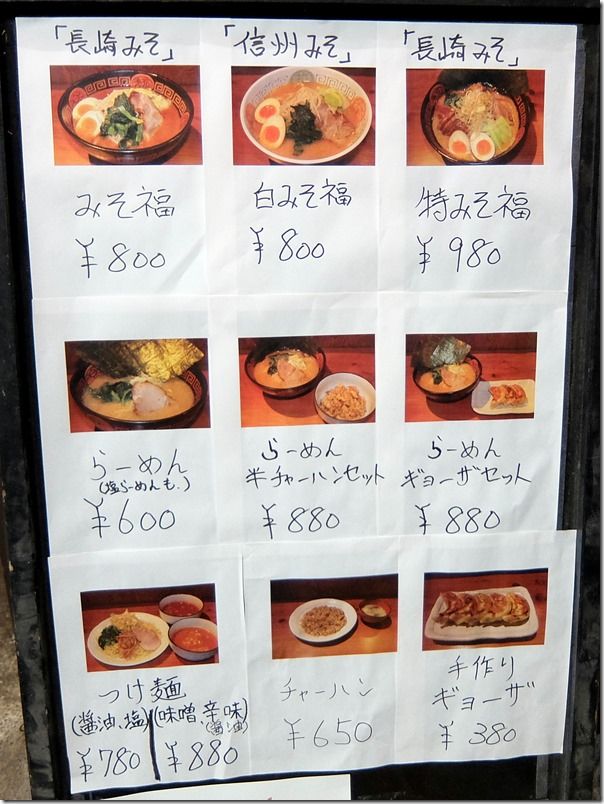 「長崎みそ」
みそ福
¥800
「信州みそ」
白みそ福
¥800
「長崎みそ」
特みそ福
¥980
らーめん
(塩らーめんも.)
¥600
らーめん
半チャーハンセット
¥880
らーめん
ギョーザセット
¥880
つけ麺
(醤油、塩)
¥780
(味噌、辛味
(醤油)
¥880
チャーハン
¥650
手作り
ギョーザ
¥380